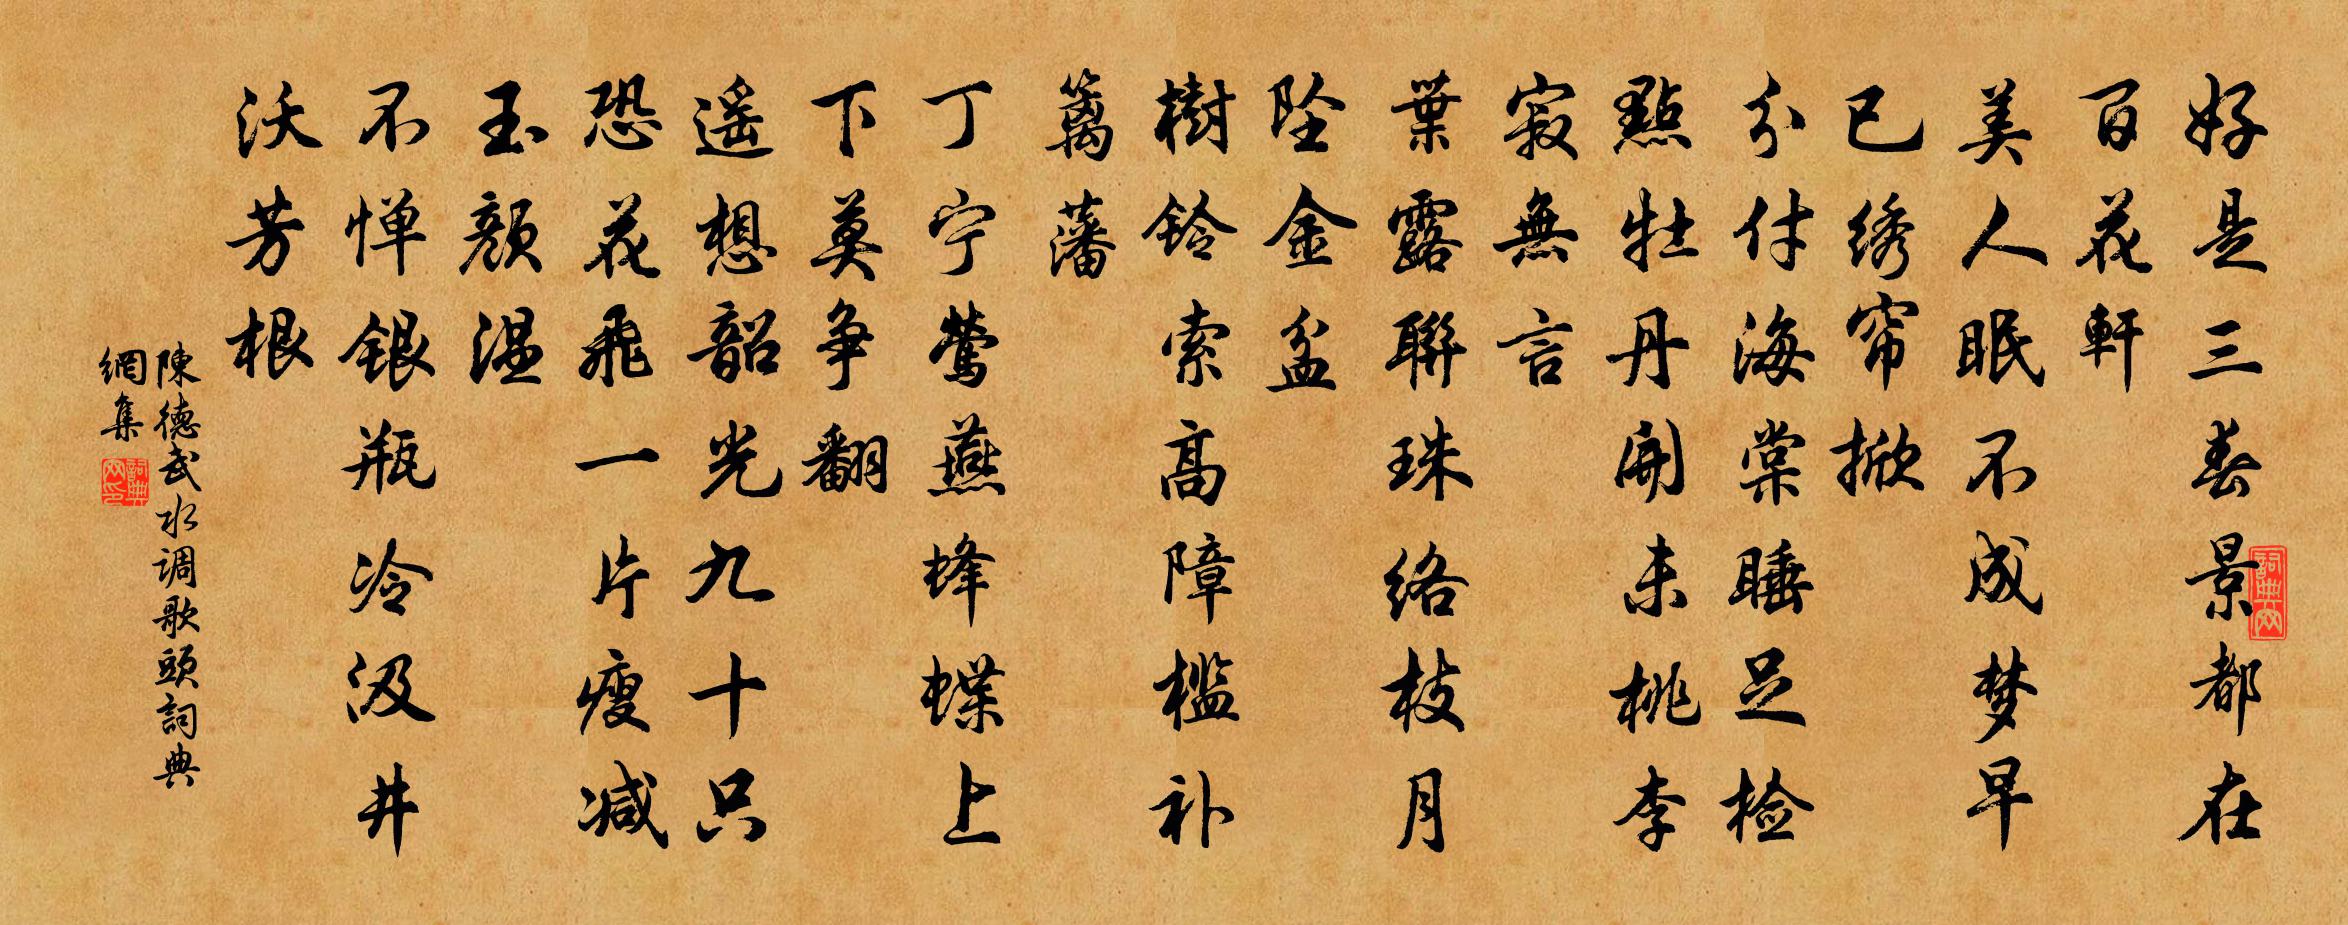 好是三春景都在
百花軒
美人眠不成梦早
已绣帘掀
分付海棠睡足检
點牡丹開未桃李
寂無言
葉露聯珠络枝月
坠金盆
樹铃索高障槛补
篱藩
丁宁莺燕蜂蝶上
下莫争翻
遥想韶光九十只
恐花飛一片瘦减
玉颜温
不惮银瓶冷汲井
沃芳根
陳德武水调歌頭詞典
網集
詞典网
詞典网印